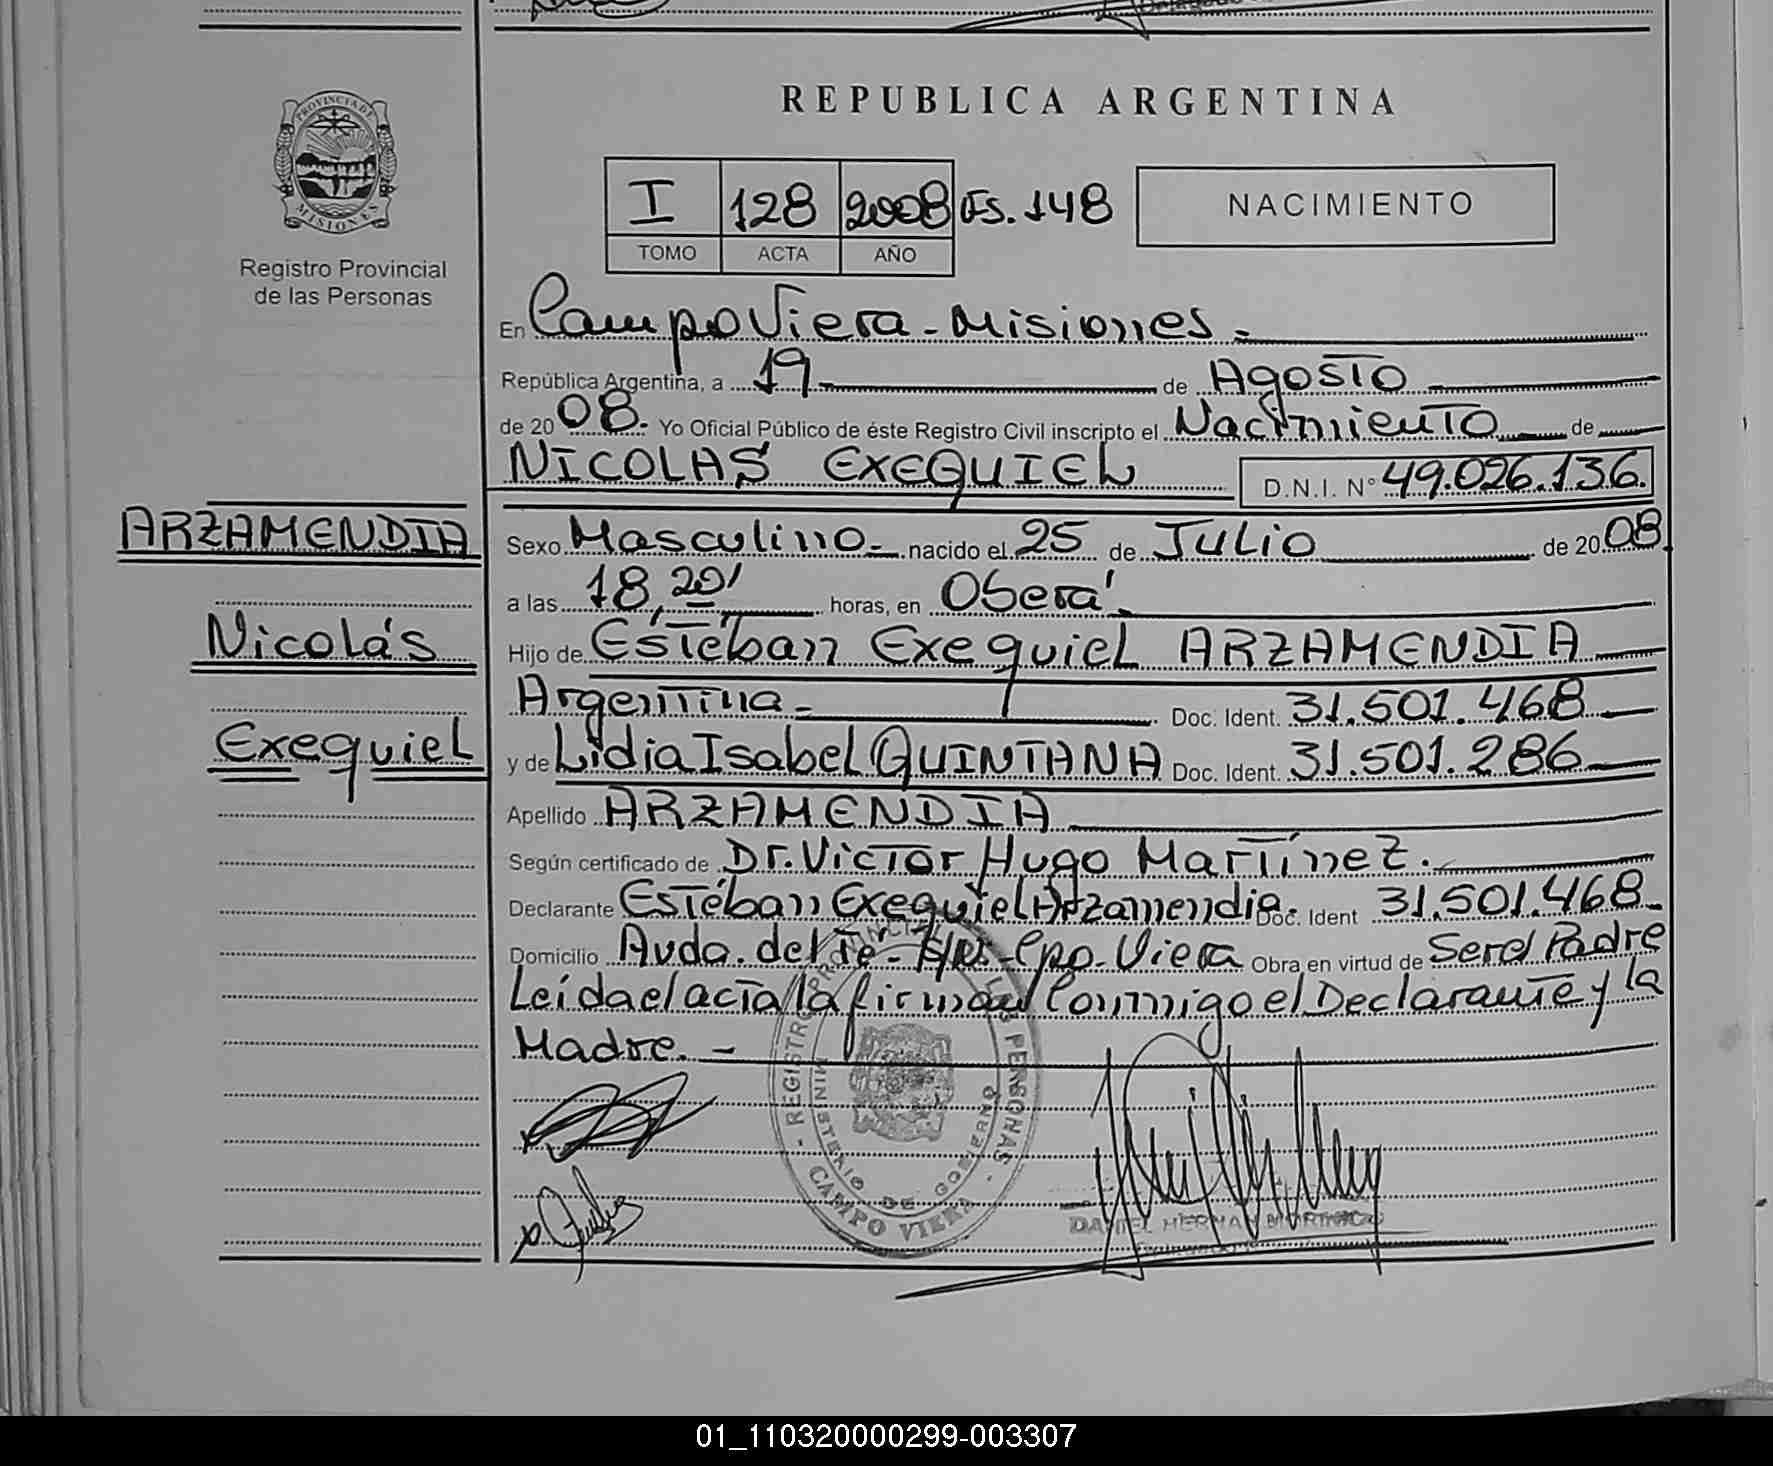 REPUBLICA ARGENTINA
PROVINCIA DE
MISIONES
Registro Provincial
de las Personas
I 128 2008 Fs. 148
TOMO ACTA AÑO
NACIMIENTO
En Campo Viera - Misiones -
República Argentina, a 19 de Agosto
de 2008. Yo Oficial Público de éste Registro Civil inscripto el Nacimiento de
NICOLAS EXEQUIEL D.N.I. N° 49.026.136.
ARZAMENDIA
Nicolás
Exequiel
Sexo Masculino - nacido el 25 de Julio de 2008
a las 18,20' horas, en Oberá
Hijo de Estéban Exequiel ARZAMENDIA
Argentina - Doc. Ident. 31.501.468
y de Lidia Isabel QUINTANA Doc. Ident. 31.501.286
Apellido ARZAMENDIA
Según certificado de Dr. Victor Hugo Martínez.
Declarante Estéban Exequiel Arzamendia. Doc. Ident 31.501.468
Domicilio Avda. del Té - Cpo. Viera Obra en virtud de Ser el Padre
Leída el acta la firman Conmigo el Declarante y la
Madre. -
REGISTRO PROVINCIAL DE LAS PERSONAS
MINISTERIO DE GOBIERNO
CAMPO VIERA
DANIEL HERNAN
01_110320000299-003307